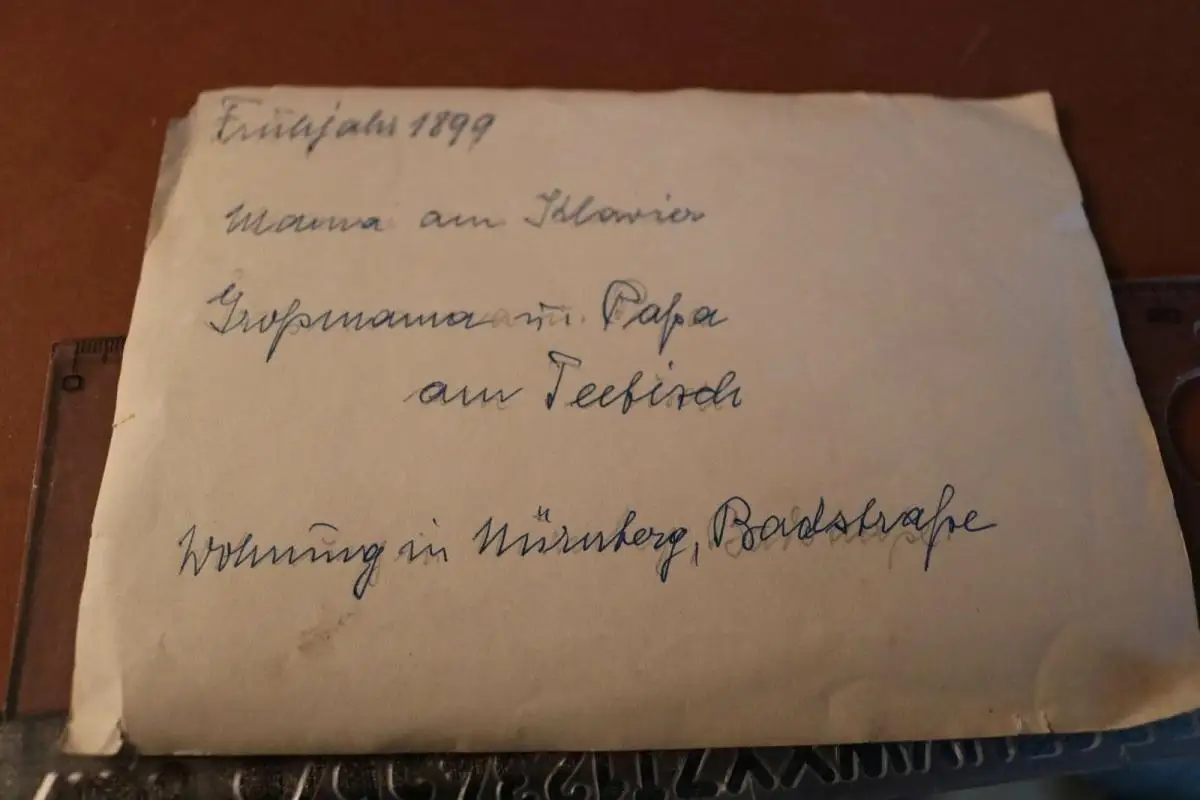 Frühjahr 1899
Mama am Klavier
Großmama u. Papa
am Teetisch
Wohnung in Nürnberg, Badstraße